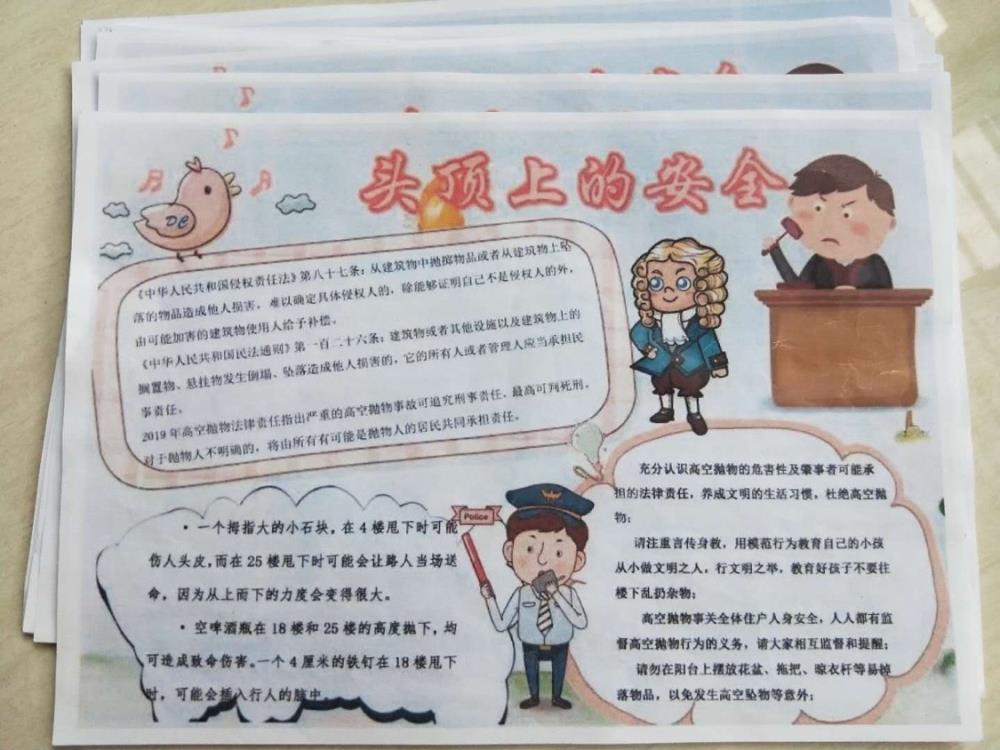 头顶上的安全
DC
《中华人民共和国侵权责任法》第八十七条：从建筑物中抛掷物品或者从建筑物上坠
落的物品造成他人损害，难以确定具体侵权人的，除能够证明自己不是侵权人的外，
由可能加害的建筑物使用人给予补偿。
《中华人民共和国民法通则》第一百二十六条：建筑物或者其他设施以及建筑物上的
搁置物、悬挂物发生倒塌、坠落造成他人损害的，它的所有人或者管理人应当承担民
事责任。
2019年高空抛物法律责任指出严重的高空抛物事故可追究刑事责任，最高可判死刑。
对于抛物人不明确的，将由所有有可能是抛物人的居民共同承担责任。
Police
·一个拇指大的小石块，在4楼甩下时可能
伤人头皮，而在25楼甩下时可能会让路人当场送
命，因为从上而下的力度会变得很大。
·空啤酒瓶在18楼和25楼的高度抛下，均
可造成致命伤害。一个4厘米的铁钉在18楼甩下
时，可能会插入行人的脑中
充分认识高空抛物的危害性及肇事者可能承
担的法律责任，养成文明的生活习惯，杜绝高空抛
物；
请注重言传身教，用模范行为教育自己的小孩
从小做文明之人，行文明之举，教育好孩子不要往
楼下乱扔杂物；
高空抛物事关全体住户人身安全，人人都有监
督高空抛物行为的义务，请大家相互监督和提醒；
请勿在阳台上摆放花盆、拖把、晾衣杆等易掉
落物品，以免发生高空坠物等意外；